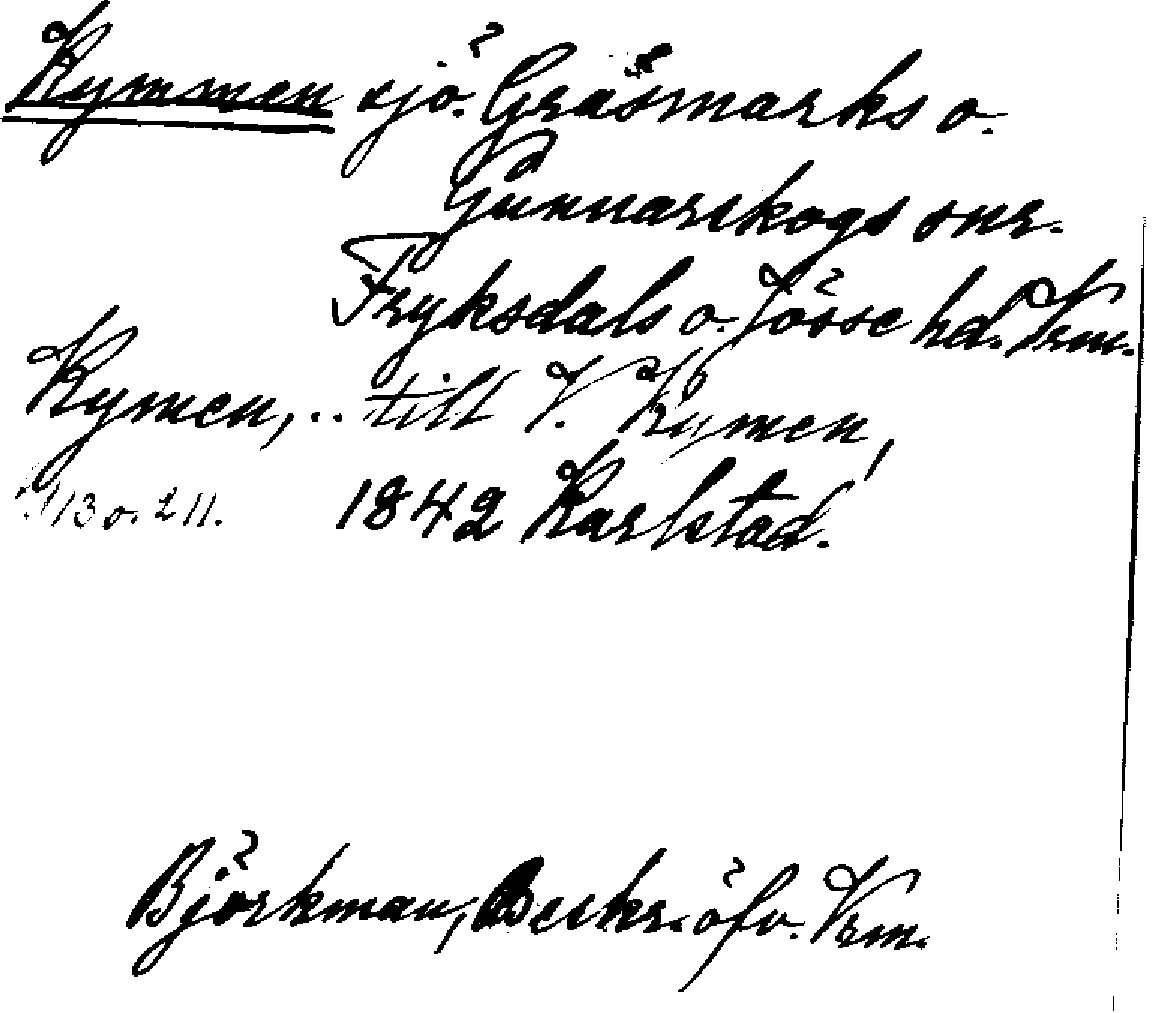 Kymmen sjö. Gräsmarks o.
Gunnarskogs snr.
Fryksdals o. Jösse hd. Vrm.
Kymen, .. till V. Kymen,
113 o. 211. 1842 Karlstad.
Björkman, Beskr. öfv. Vrm.